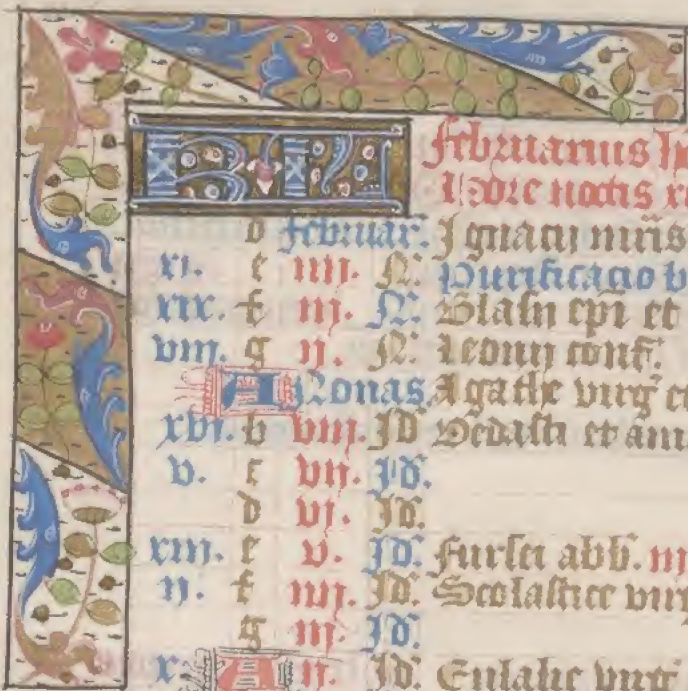 KL
Februarius h
Hore noctis x
d Februar. Ignacii mris
xi. e iiij. N. Purificacio b
xix. f iij. N. Blasii epi et
viij. g ij. N. conf.
A Nonas. Agathe virg et
xvi. b viij. Id Vedasti et am
v. c vij. Id.
d vj. Id.
xiij. e v. Id. Fursei abb. iij
ij. f iiij. Id. Scolastice virg
g iij. Id.
x. A ij. Id. Eulalie virg